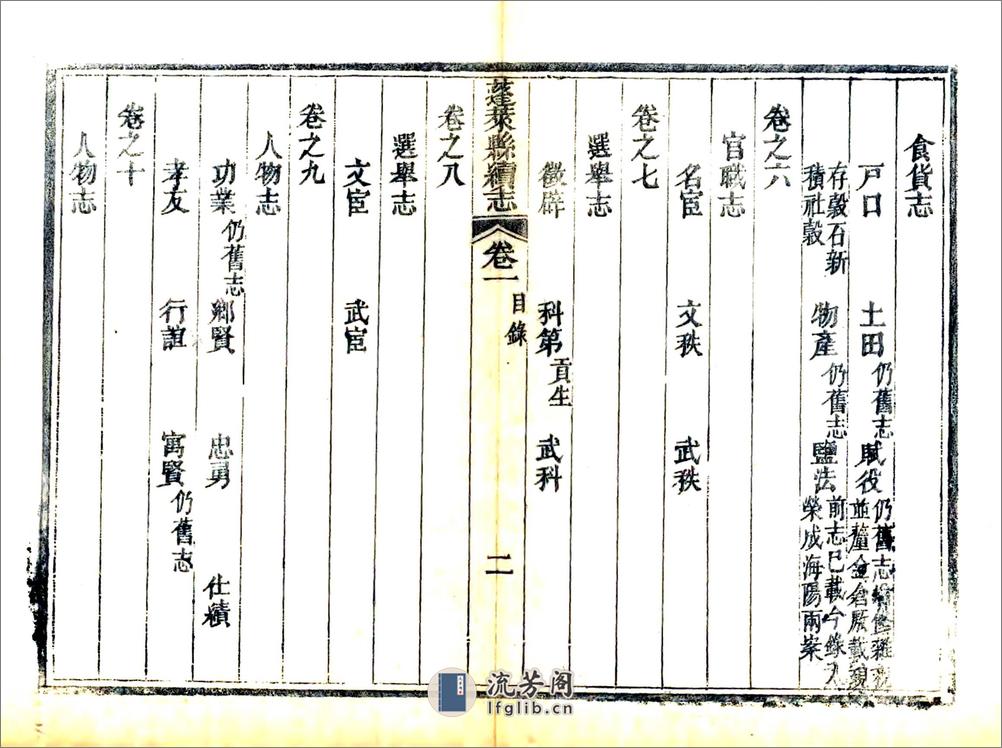 食貨志
戸口 土田仍舊志 賦役仍舊志
並釐金倉厫載現
存穀石新積社穀 物産仍舊志 鹽法前志已載今錄入榮成海陽兩案
卷之六
官職志
名宦 文秩 武秩
卷之七
選舉志
徵辟 科第貢生 武科
蓬萊縣續志 卷一 目錄 二
卷之八
選舉志
文宦 武宦
卷之九
人物志
功業仍舊志 鄉賢 忠勇 仕績
孝友 行誼 寓賢仍舊志
卷之十
人物志
流芳阁
lfglib.cn